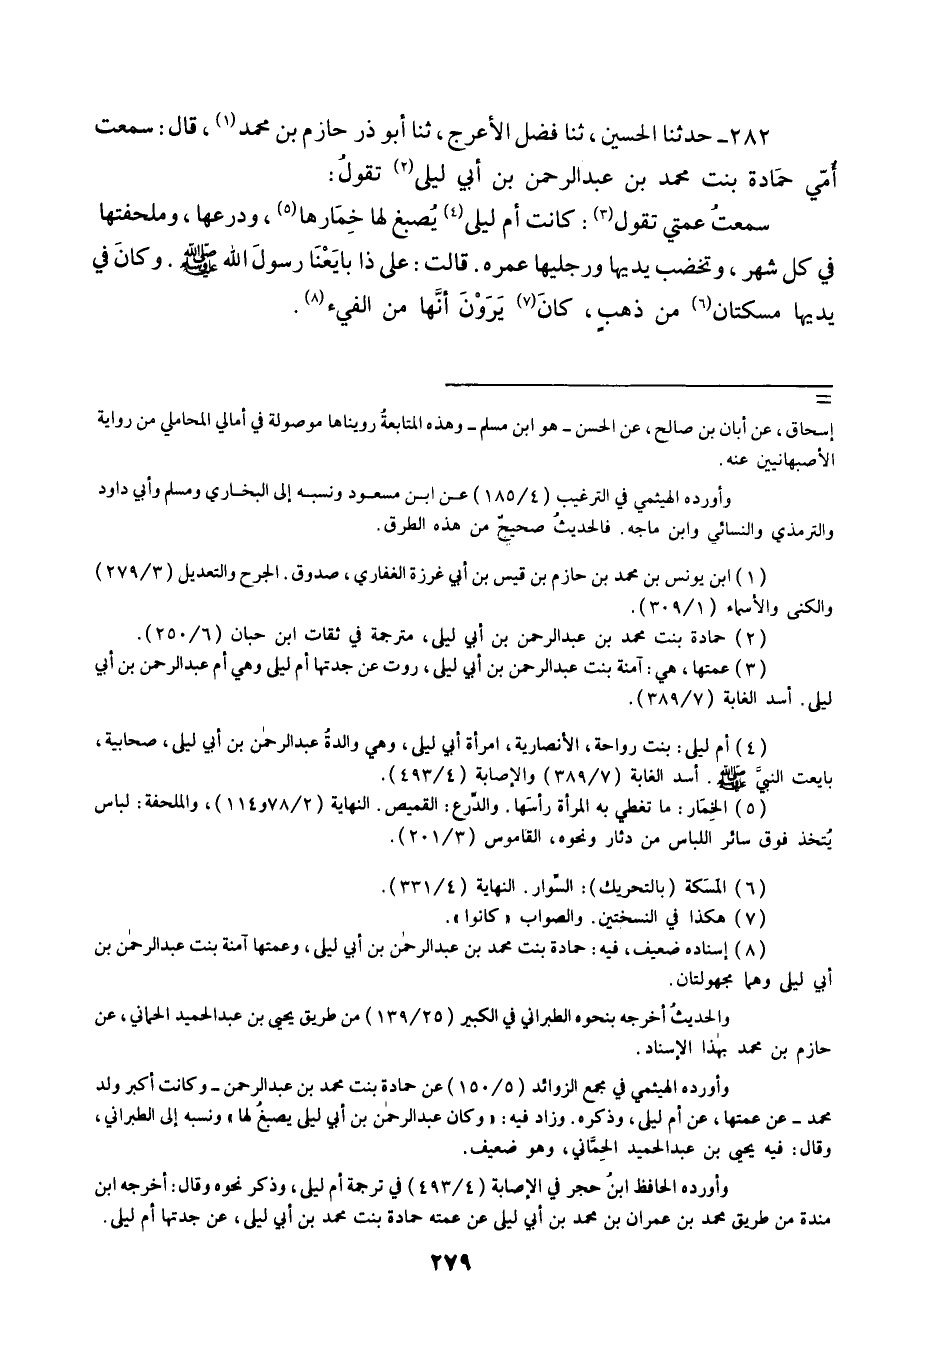 ٢٨٢ـ حدثنا الحسين ، ثنا فضل الأعرج ، ثنا أبو ذر حازم بن محمد(١) ، قال : سمعت
أُمّي حمّادة بنت محمد بن عبدالرحمن بن أبي ليلى(٢) تقولُ :
سمعتُ عمتي تقول(٣) : كانت أم ليلى(٤) يُصبغ لها خِمَارها(٥) ، ودرعها ، وملحفتها
في كل شهر ، وتخضب يديها ورجليها عمره . قالت : على ذا بايَعْنَا رسولَ الله ﷺ . وكانَ في
يديها مسكتان(٦) من ذهبٍ ، كانَ(٧) يَرَوْنَ أنَّها من الفيء(٨) .
=
إسحاق ، عن أبان بن صالح ، عن الحسن ـ هو ابن مسلم ـ وهذه المتابعةُ رويناها موصولة في أمالي المحاملي من رواية
الأصبهانيين عنه .
وأورده الهيثمي في الترغيب ( ١٨٥/٤ ) عن ابن مسعود ونسبه إلى البخاري ومسلم وأبي داود
والترمذي والنسائي وابن ماجه . فالحديثُ صحيحٌ من هذه الطرق .
( ١ ) ابن يونس بن محمد بن حازم بن قيس بن أبي غرزة الغفاري ، صدوق . الجرح والتعديل ( ٢٧٩/٣ )
والكنى والأسماء ( ٣٠٩/١ ) .
( ٢ ) حمادة بنت محمد بن عبدالرحمن بن أبي ليلى ، مترجمة في ثقات ابن حبان ( ٢٥٠/٦ ) .
( ٣ ) عمتها ، هي : آمنة بنت عبدالرحمن بن أبي ليلى ، روت عن جدتها أم ليلى وهي أم عبدالرحمن بن أبي
ليلى . أسد الغابة ( ٣٨٩/٧ ) .
( ٤ ) أم ليلى : بنت رواحة ، الأنصارية ، امرأة أبي ليلى ، وهي والدةُ عبدالرحمٰن بن أبي ليلى ، صحابية ،
بايعت النبيَّ ﷺ . أسد الغابة ( ٣٨٩/٧ ) والإصابة ( ٤٩٣/٤ ) .
( ٥ ) الخِمَار : ما تغطي به المرأة رأسَها . والدِّرع : القميص . النهاية ( ٧٨/٢ و١١٤ ) ، والملحفة : لباس
يُتخذ فوق سائر اللباس من دثار ونحوه ، القاموس ( ٢٠١/٣ ) .
( ٦ ) المَسَكة ( بالتحريك ) : السِّوار . النهاية ( ٣٣١/٤ ) .
( ٧ ) هكذا في النسختين . والصواب « كانوا » .
( ٨ ) إسناده ضعيف ، فيه : حمادة بنت محمد بن عبدالرحمٰن بن أبي ليلى ، وعمتها آمنة بنت عبدالرحمٰن بن
أبي ليلى وهما مجهولتان .
والحديثُ أخرجه بنحوه الطبراني في الكبير ( ١٣٩/٢٥ ) من طريق يحيى بن عبدالحميد الحماني ، عن
حازم بن محمد بهٰذا الإسناد .
وأورده الهيثمي في مجمع الزوائد ( ١٥٠/٥ ) عن حمادة بنت محمد بن عبدالرحمن ـ وكانت أكبر ولد
محمد ـ عن عمتها ، عن أم ليلى ، وذكره . وزاد فيه : « وكان عبدالرحمٰن بن أبي ليلى يصبغُ لها » ونسبه إلى الطبراني ،
وقال : فيه يحيى بن عبدالحميد الحِمَّاني ، وهو ضعيف .
وأورده الحافظ ابنُ حجر في الإصابة ( ٤٩٣/٤ ) في ترجمة أم ليلى ، وذكر نحوه وقال : أخرجه ابن
مندة من طريق محمد بن عمران بن محمد بن أبي ليلى عن عمته حمادة بنت محمد بن أبي ليلى ، عن جدتها أم ليلى .
٢٧٩